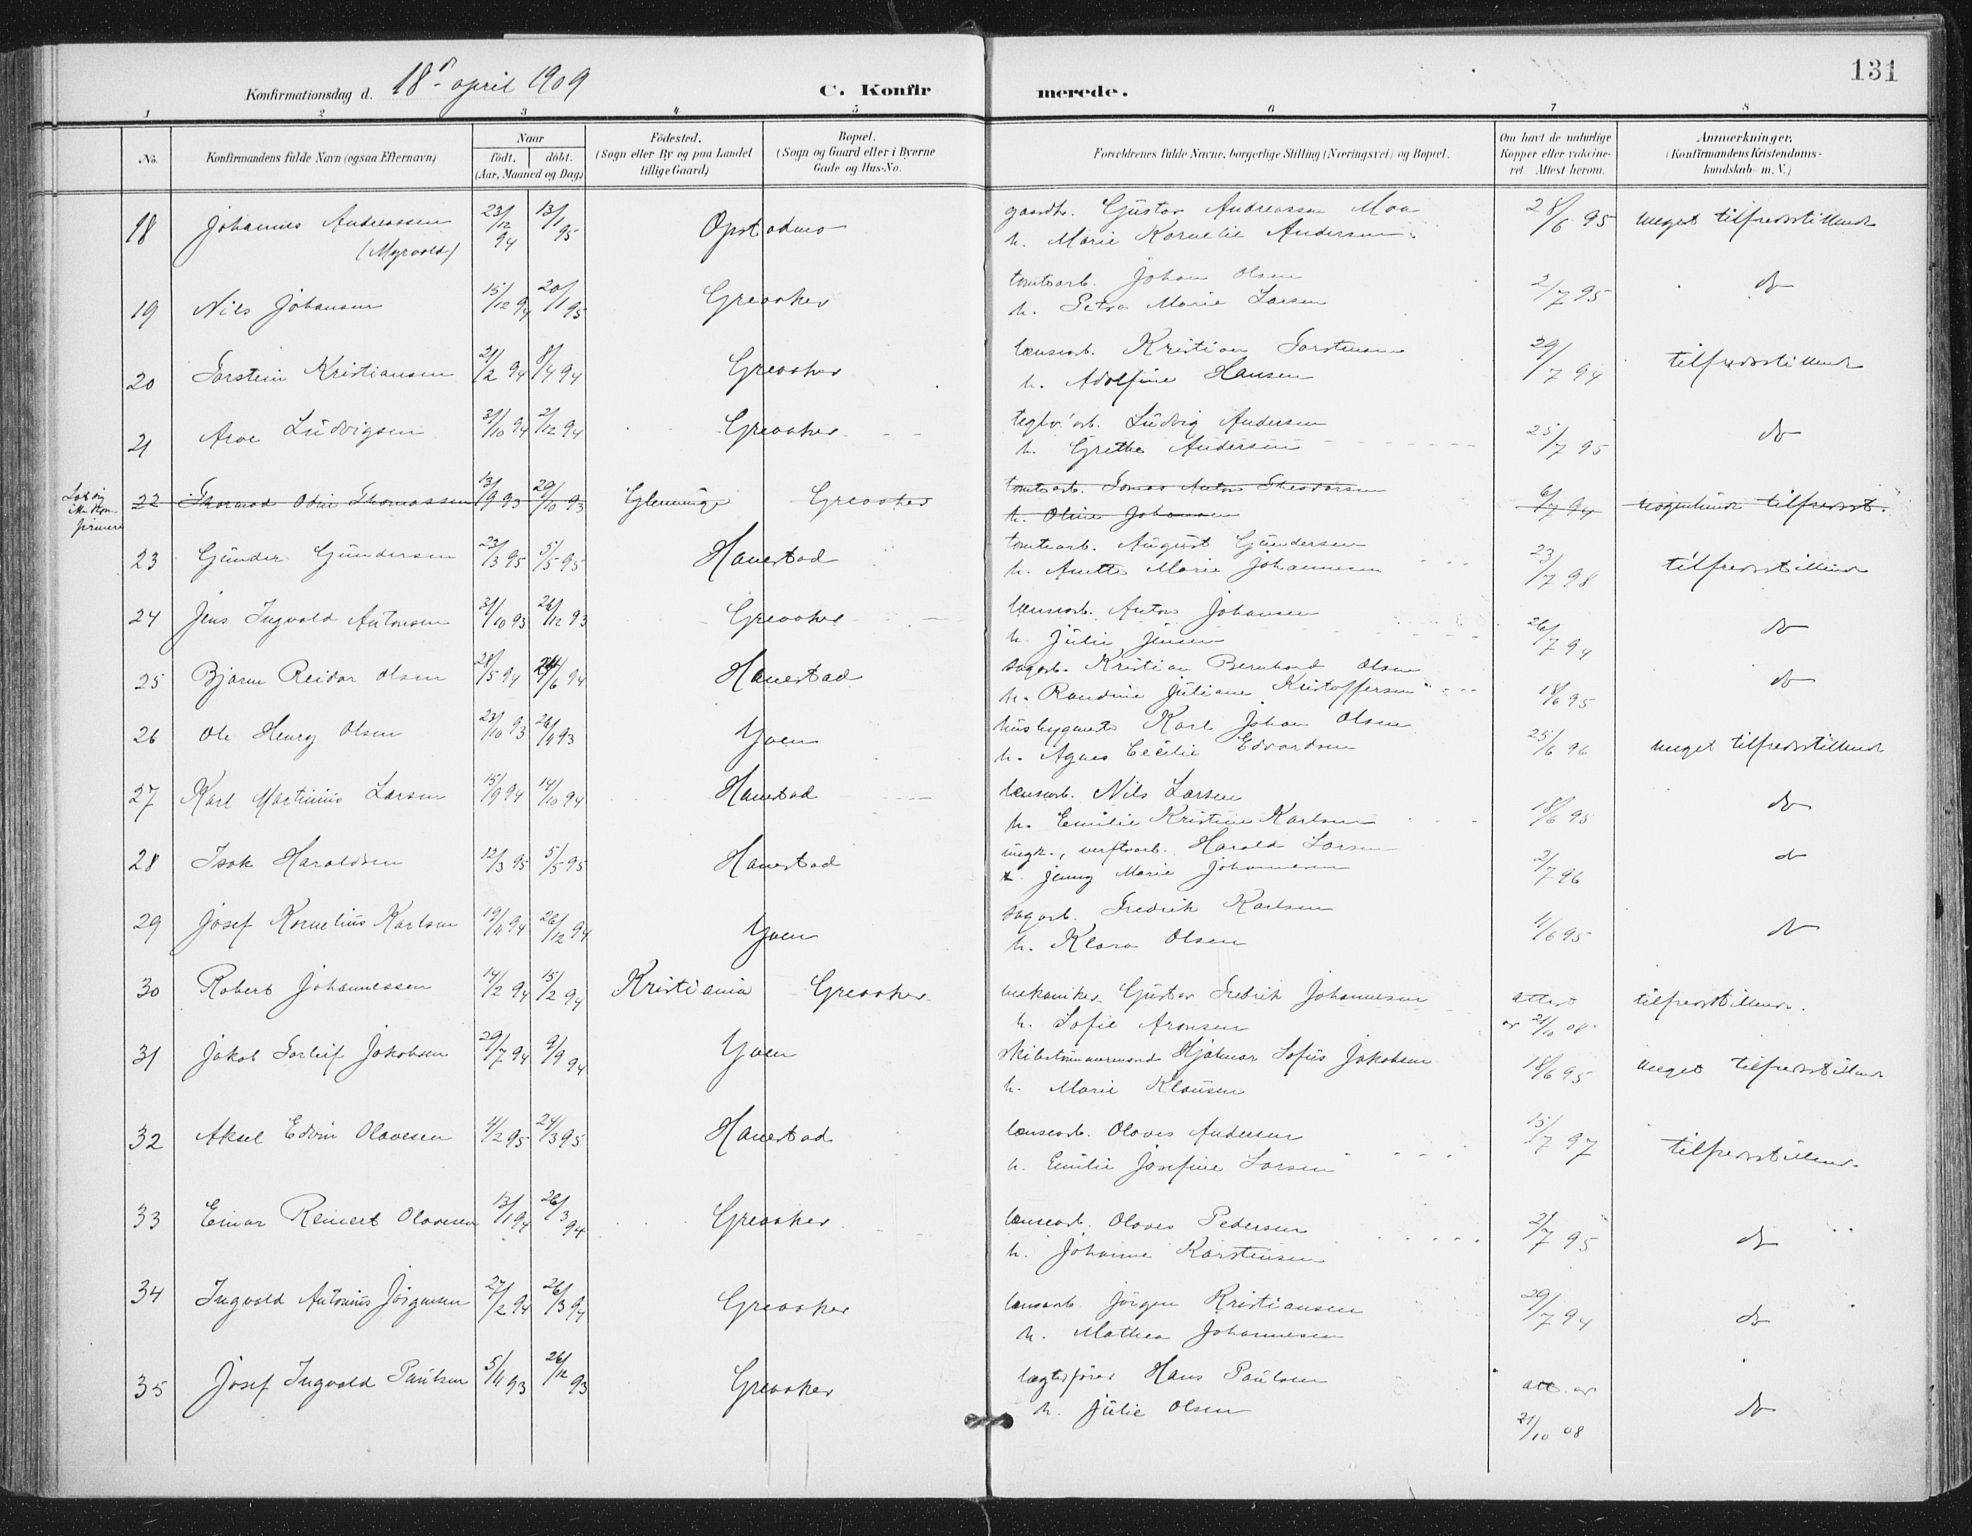 131
Konfirmationsdag d. 18de april 1909 C. Konfirmerede.
1 2 3 4 5 6 7 8
No. Konfirmandens fulde Navn (ogsaa Efternavn) Naar født. døbt. (Aar, Maaned og Dag) Födested. (Sogn eller By og paa Landet tillige Gaard) Bopæl. (Sogn og Gaard eller i Byerne Gade og Hus-No. Forældrenes fulde Navne, borgerlige Stilling (Næringsvei) og Bopæl. Om havt de naturlige Kopper eller vakcineret. Attest herom. Anmærkninger. (Konfirmandens Kristendomskundskab m. V.)
18 Johannes Andreassen 23/12 94 13/1 95 Opstadmo gaardbr. Gustav Andreassen Moa 28/6 95 meget tilfredsstillende
(Myrvold) h. Marie Kornelie Andersen
19 Nils Johansen 15/12 94 20/1 95 Greaaker tomtearb. Johan Olsen 2/7 95 do
h. Petra Marie Larsen
20 Torstein Kristiansen 21/2 94 8/4 94 Greaaker lænsearb. Kristian Torstensen 29/7 94 tilfredsstillende
h. Adolfine Hansen
21 Arve Ludvigsen 31/10 94 2/12 94 Greaaker teglv.arb. Ludvig Andersen 25/7 95 do
h. Grethe Andersen
Lod sig ikke konfirmere
22 Thorvod Odin Thomassen 13/9 93 29/10 93 Glemminge Greaaker tomtearb. Tomas Anton Theodorsen 6/7 94 nogenlunde tilfredsst.
h. Oline Johansen
23 Gunder Gundersen 23/3 95 5/5 95 Hanestad tomtearb. August Gundersen 23/7 98 tilfredsstillende
h. Anette Marie Johannesen
24 Jens Ingvald Antonsen 31/10 93 26/12 93 Greaaker lænsearb. Anton Johansen 26/7 94 do
h. Julie Jensen
25 Bjarne Reidar Olsen 28/5 94 24/6 94 Hanestad sagarb. Kristian Bernhard Olsen 18/6 95 do
h. Randine Juliane Kristoffersen
26 Ole Henry Olsen 23/10 93 26/11 93 Yven husbygmester Karl Johan Olsen 25/6 96 meget tilfredsstillende
h. Agnes Cecilie Edvardsen
27 Karl Martinius Larsen 15/9 94 14/10 94 Hanestad lænsearb. Nils Larsen 18/6 95 do
h. Emilie Kristine Karlsen
28 Isak Haraldsen 12/3 95 5/5 95 Hanestad ungk., verftsarb. Harald Larsen 2/7 96 do
Jenny Marie Johannesen
29 Josef Kornelius Karlsen 19/11 94 26/12 94 Yven sagarb. Fredrik Karlsen 11/6 95 do
h. Klara Olsen
30 Robert Johannessen 14/2 94 15/2 94 Kristiania Greaaker mekaniker Gustav Fredrik Johannesen attest tilfredsstillende
h. Sofie Aronsen av 21/10 08
31 Jakob Torleif Jakobsen 29/7 94 9/9 94 Yven skibstømmermand Hjalmar Sofus Jakobsen 18/6 95 meget tilfredsstillende
h. Marie Klausen
32 Aksel Edvin Olavesen 4/2 95 24/3 95 Hanestad lænsearb. Olaves Andersen 15/7 97 tilfredsstillende
h. Emilie Josefine Larsen
33 Einar Reinert Olavesen 13/1 94 26/3 94 Greaaker lænsearb. Olaves Pedersen 2/7 95 do
h. Johanne Karstensen
34 Ingvald Antonius Jörgensen 27/2 94 26/3 94 Greaaker lænsearb. Jörgen Kristiansen 29/7 94 do
h. Mathea Johannesen
35 Josef Ingvald Paulsen 5/11 93 26/12 93 Greaaker lægtsfører Hans Paulsen att. av do
h. Julie Olsen 21/10 08